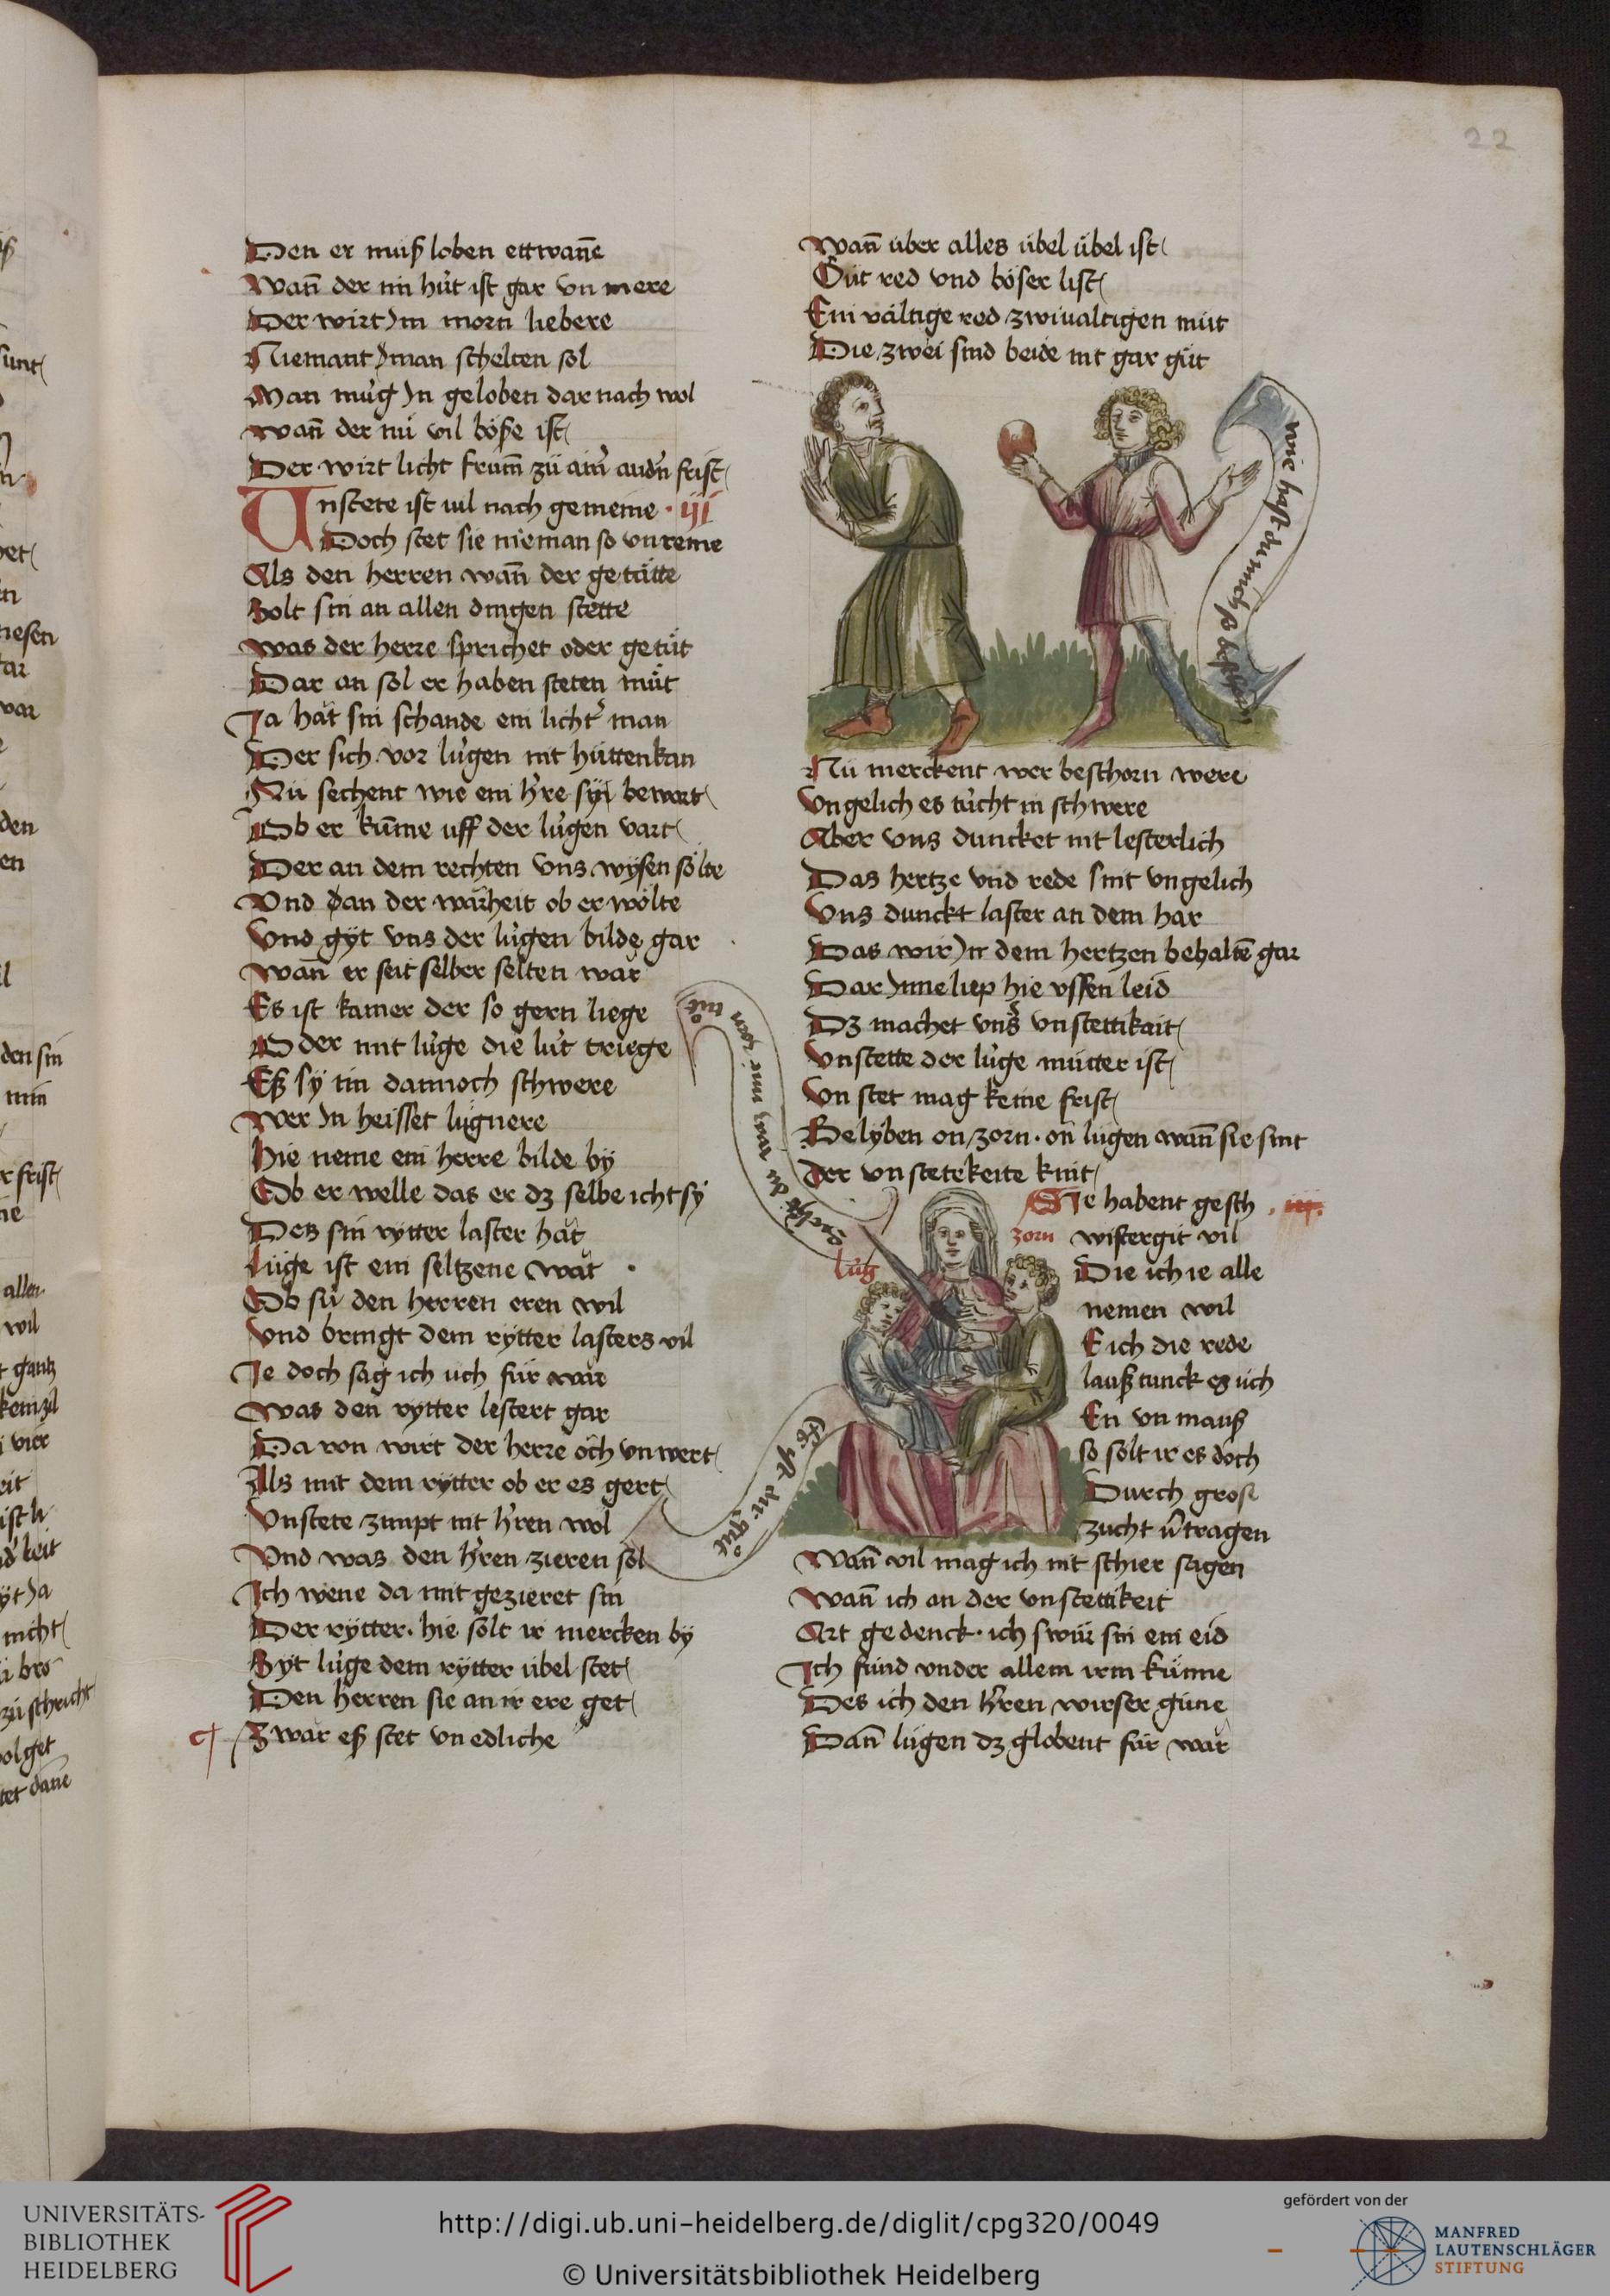 22
Den er muß loben ettwañe
Wañ der im hüt ist gar vn mere
Der wirt Im morn liebere
Niemant man schelten sol
Man müg In geloben dar nach wol
Wañ der nü vil böße ist
Der wirt licht frum̄ zü aim̄ andn̄ frist
Vnstete ist uil nach gemeine · iij
Doch stet sie nieman so vnreine
Als den herren wañ der getätte
Solt sin an allen dingen stette
Was der herre sprichet oder getüt
Dar an sol er haben steten müt
Ja hät sin schande ein licht̄ man
Der sich vor lügen nit hüttenkan
Nü sechent wie ein h̄re syn bewart
Ob er kum̄e uff der lügen vart
Der an dem rechten vns wysen sölte
Vnd an der warheit ob er wölte
Vnd gyt vns der lügen bilde gar
Wañ er seit selber selten war
Es ist kainer der so gern liege
Oder mit lüge die lüt triege
Eß sy im dannoch schwere
Wer In heisset lügnere
Hie neme ein herre bilde by
Ob er welle das er dz selbe icht sy
Des sin rytter laster hat
Lüge ist ein seltzene wät
Ob sü den herren eren wil
Vnd bringt dem rytter lasters vil
Je doch sag ich üch für war
Was den rytter lestert gar
Da von wirt der herre öch vnwert
Als mit dem rytter ob er es gert
Vnstete zimpt nit h̄ren wol
Vnd was den h̄ren zieren sol
Ich wene da mit gezieret sin
Der rytter. hie sölt ir mercken by
Syt lüge dem rytter übel stet
Den herren sie an ir ere get
Zwar eß stet vnedliche
Wañ über alles übel übel ist
Güt red vnd böser list
Ein vältige red zwiualtigen müt
Die zwei sind beide nit gar güt
wie hast du mich
Nü merckent wer beschorn were
Vngelich es tücht in schwere
Aber vns duncket nit lesterlich
Das hertze vnd rede sint vngelich
Vns dunckt laster an dem har
Das wir In dem hertzen behaltē gar
Dar Inne liep hie vssen leid
Dz machet vns̄ vnstettikait
Vnstette der lüge mütter ist
Vn stet mag keine frist
Belyben on zorn. on lügen wañ sie sint
der vnstetekeite kint
Sie habent gesch . iiij.
zorn wistergit vil
lüg
Die ich ie alle
nemen wil
E ich die rede
lauß tunck es üch
En vn mauß
so solt ir es doch
Durch grose
zücht v̄tragen
ist der güt
Wañ vil mag ich nit schier sagen
Wañ ich an der vnstettikeit
Art gedenck. ich swür sin ein eid
Ich fünd vnder allem irm künne
Des ich den h̄ren wirser güne
Dañ lügen dz globent für war
UNIVERSITÄTS-
BIBLIOTHEK
HEIDELBERG
http://digi.ub.uni-heidelberg.de/diglit/cpg320/0049
© Universitätsbibliothek Heidelberg
gefördert von der
MANFRED
LAUTENSCHLÄGER
STIFTUNG